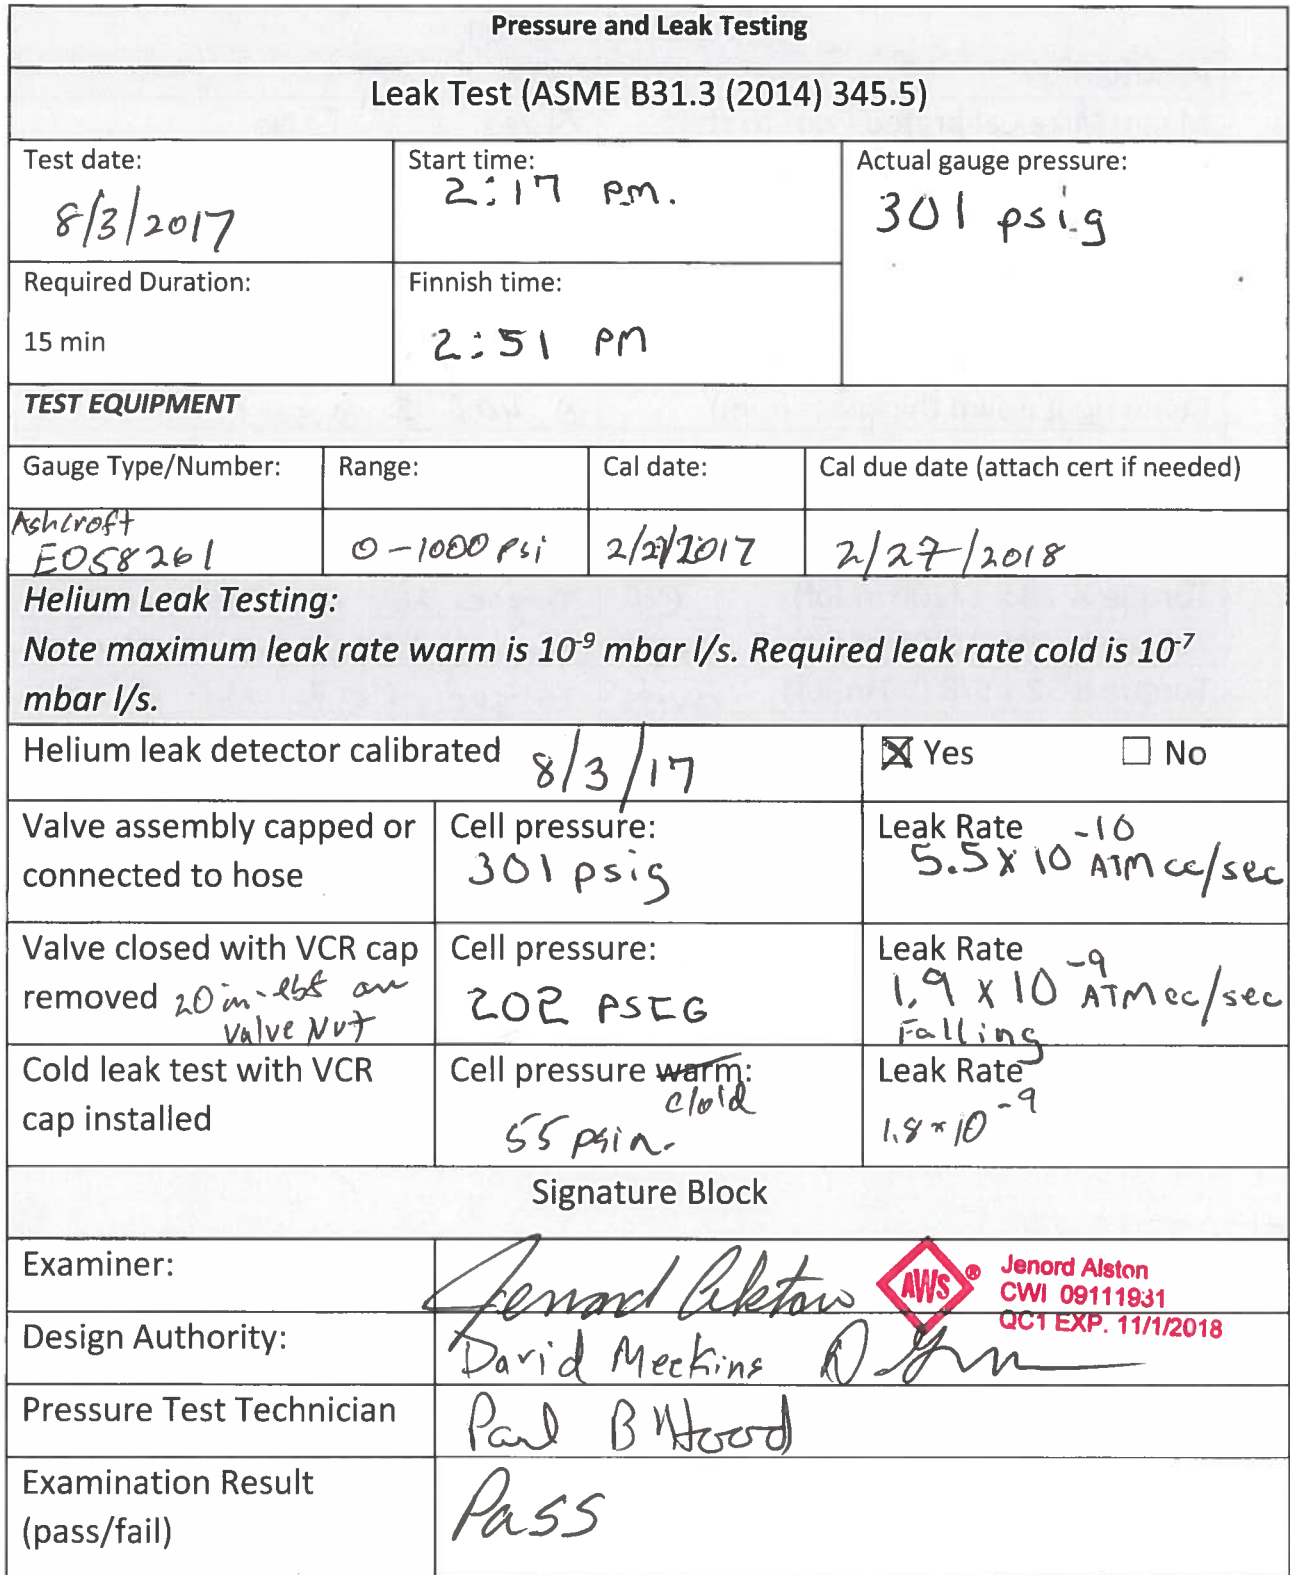 Pressure and Leak Testing
Leak Test (ASME B31.3 (2014) 345.5)
Test date:
8/3/2017
Start time:
2:17 PM.
Actual gauge pressure:
301 psig
Required Duration:
15 min
Finnish time:
2:51 PM
TEST EQUIPMENT
Gauge Type/Number:
Range:
Cal date:
Cal due date (attach cert if needed)
Ashcroft
E058261
0-1000 Psi
2/27/2017
2/27/2018
Helium Leak Testing:
Note maximum leak rate warm is 10⁻⁹ mbar l/s. Required leak rate cold is 10⁻⁷
mbar l/s.
Helium leak detector calibrated 8/3/17
☒ Yes ☐ No
Valve assembly capped or
connected to hose
Cell pressure:
301 psig
Leak Rate
5.5 X 10⁻¹⁰ ATM cc/sec
Valve closed with VCR cap
removed 20 in-lbs on
Valve Nut
Cell pressure:
202 PSIG
Leak Rate
1.9 X 10⁻⁹ ATM cc/sec
Falling
Cold leak test with VCR
cap installed
Cell pressure warm:
cold
55
Leak Rate
1.8 × 10⁻⁹
Signature Block
Examiner:
Jenord Alston
AWS ®
Jenord Alston
CWI 09111931
QC1 EXP. 11/1/2018
Design Authority:
David Meekins
Pressure Test Technician
Paul B Wood
Examination Result
(pass/fail)
Pass